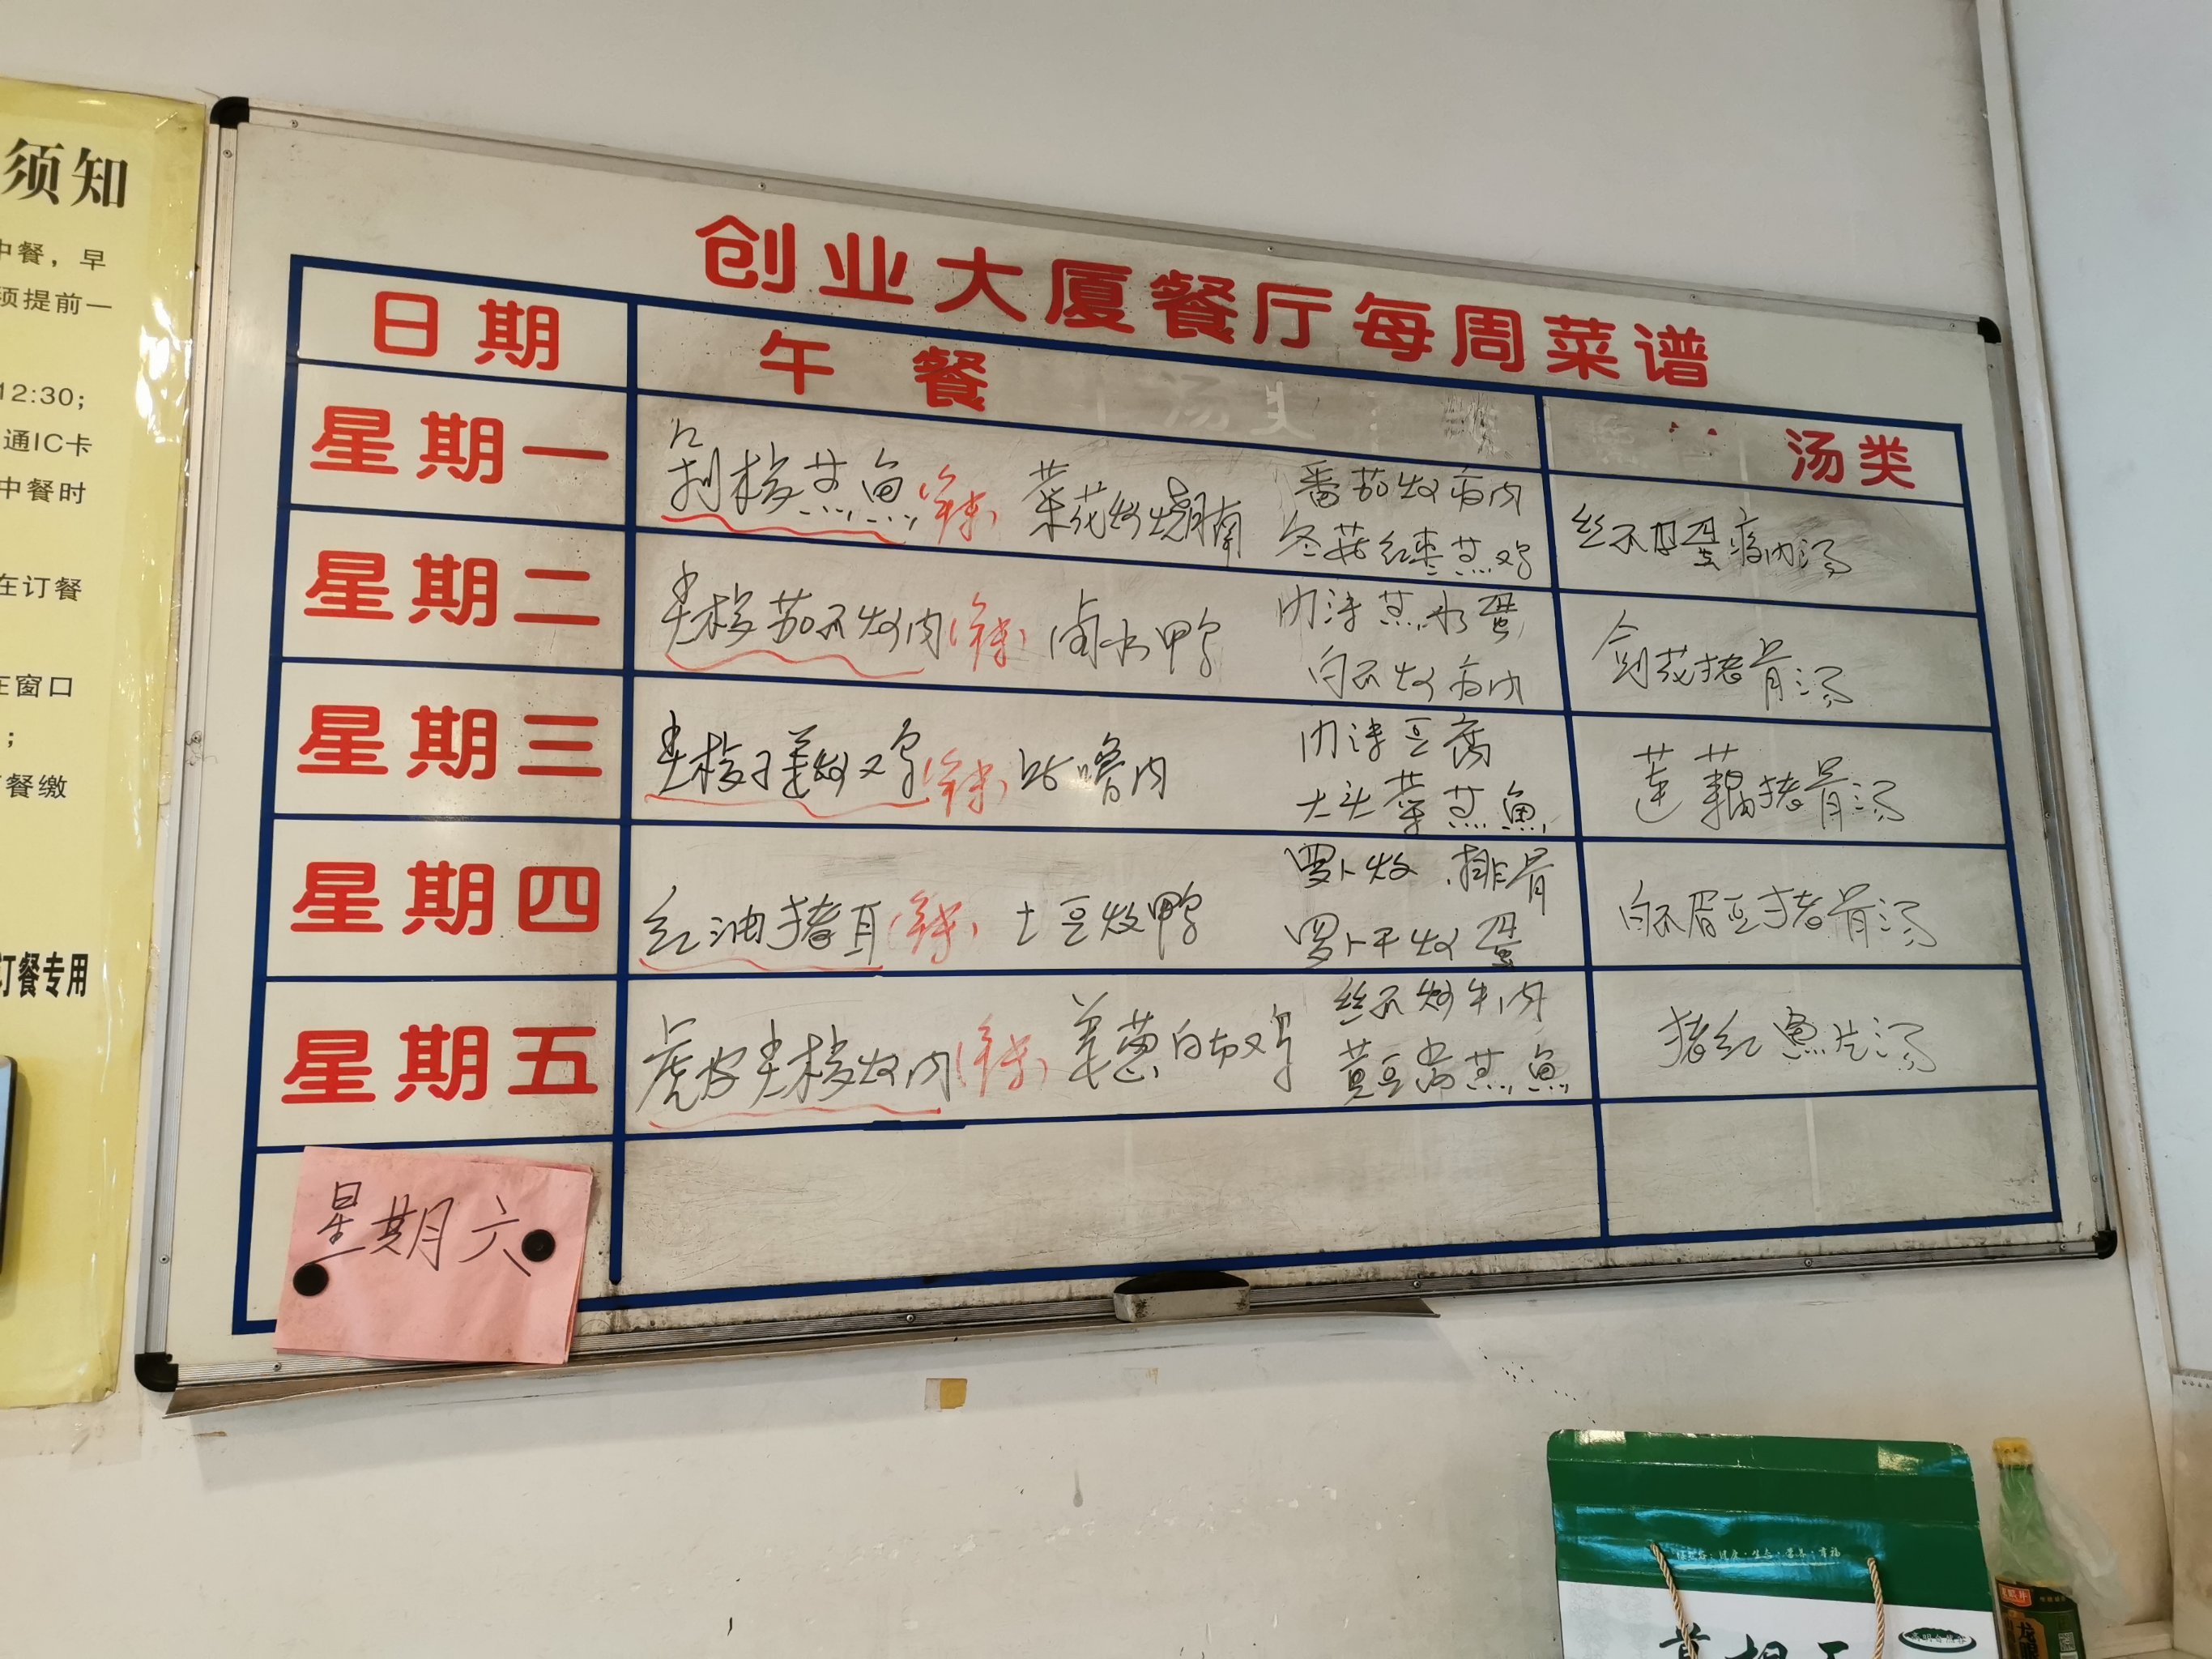 须知
中餐，早
须提前一
12:30；
通IC卡
中餐时
在订餐
在窗口
；
餐缴
订餐专用
创业大厦餐厅每周菜谱
日期 午餐 汤类
星期一
剁椒蒸鱼 菜花炒烧腩
番茄炆瘦肉
冬菇红枣蒸鸡
丝瓜咸蛋瘦肉汤
星期二
尖椒茄瓜炆肉 卤水鸭
肉沫蒸水蛋
白瓜炆瘦肉
剑花猪骨汤
星期三
尖椒子姜炒鸡 咕噜肉
肉沫豆腐
大头菜蒸鱼
莲藕猪骨汤
星期四
红油猪耳 土豆炆鸭
罗卜炆排骨
罗卜干炆蛋
白瓜眉豆猪骨汤
星期五
虎皮尖椒炆肉 姜葱白切鸡
丝瓜炒牛肉
黄豆酱蒸鱼
猪红鱼片汤
星期六